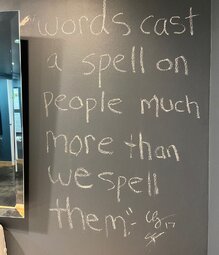 words cast
a spell on
people much
more than
we spell
them:-